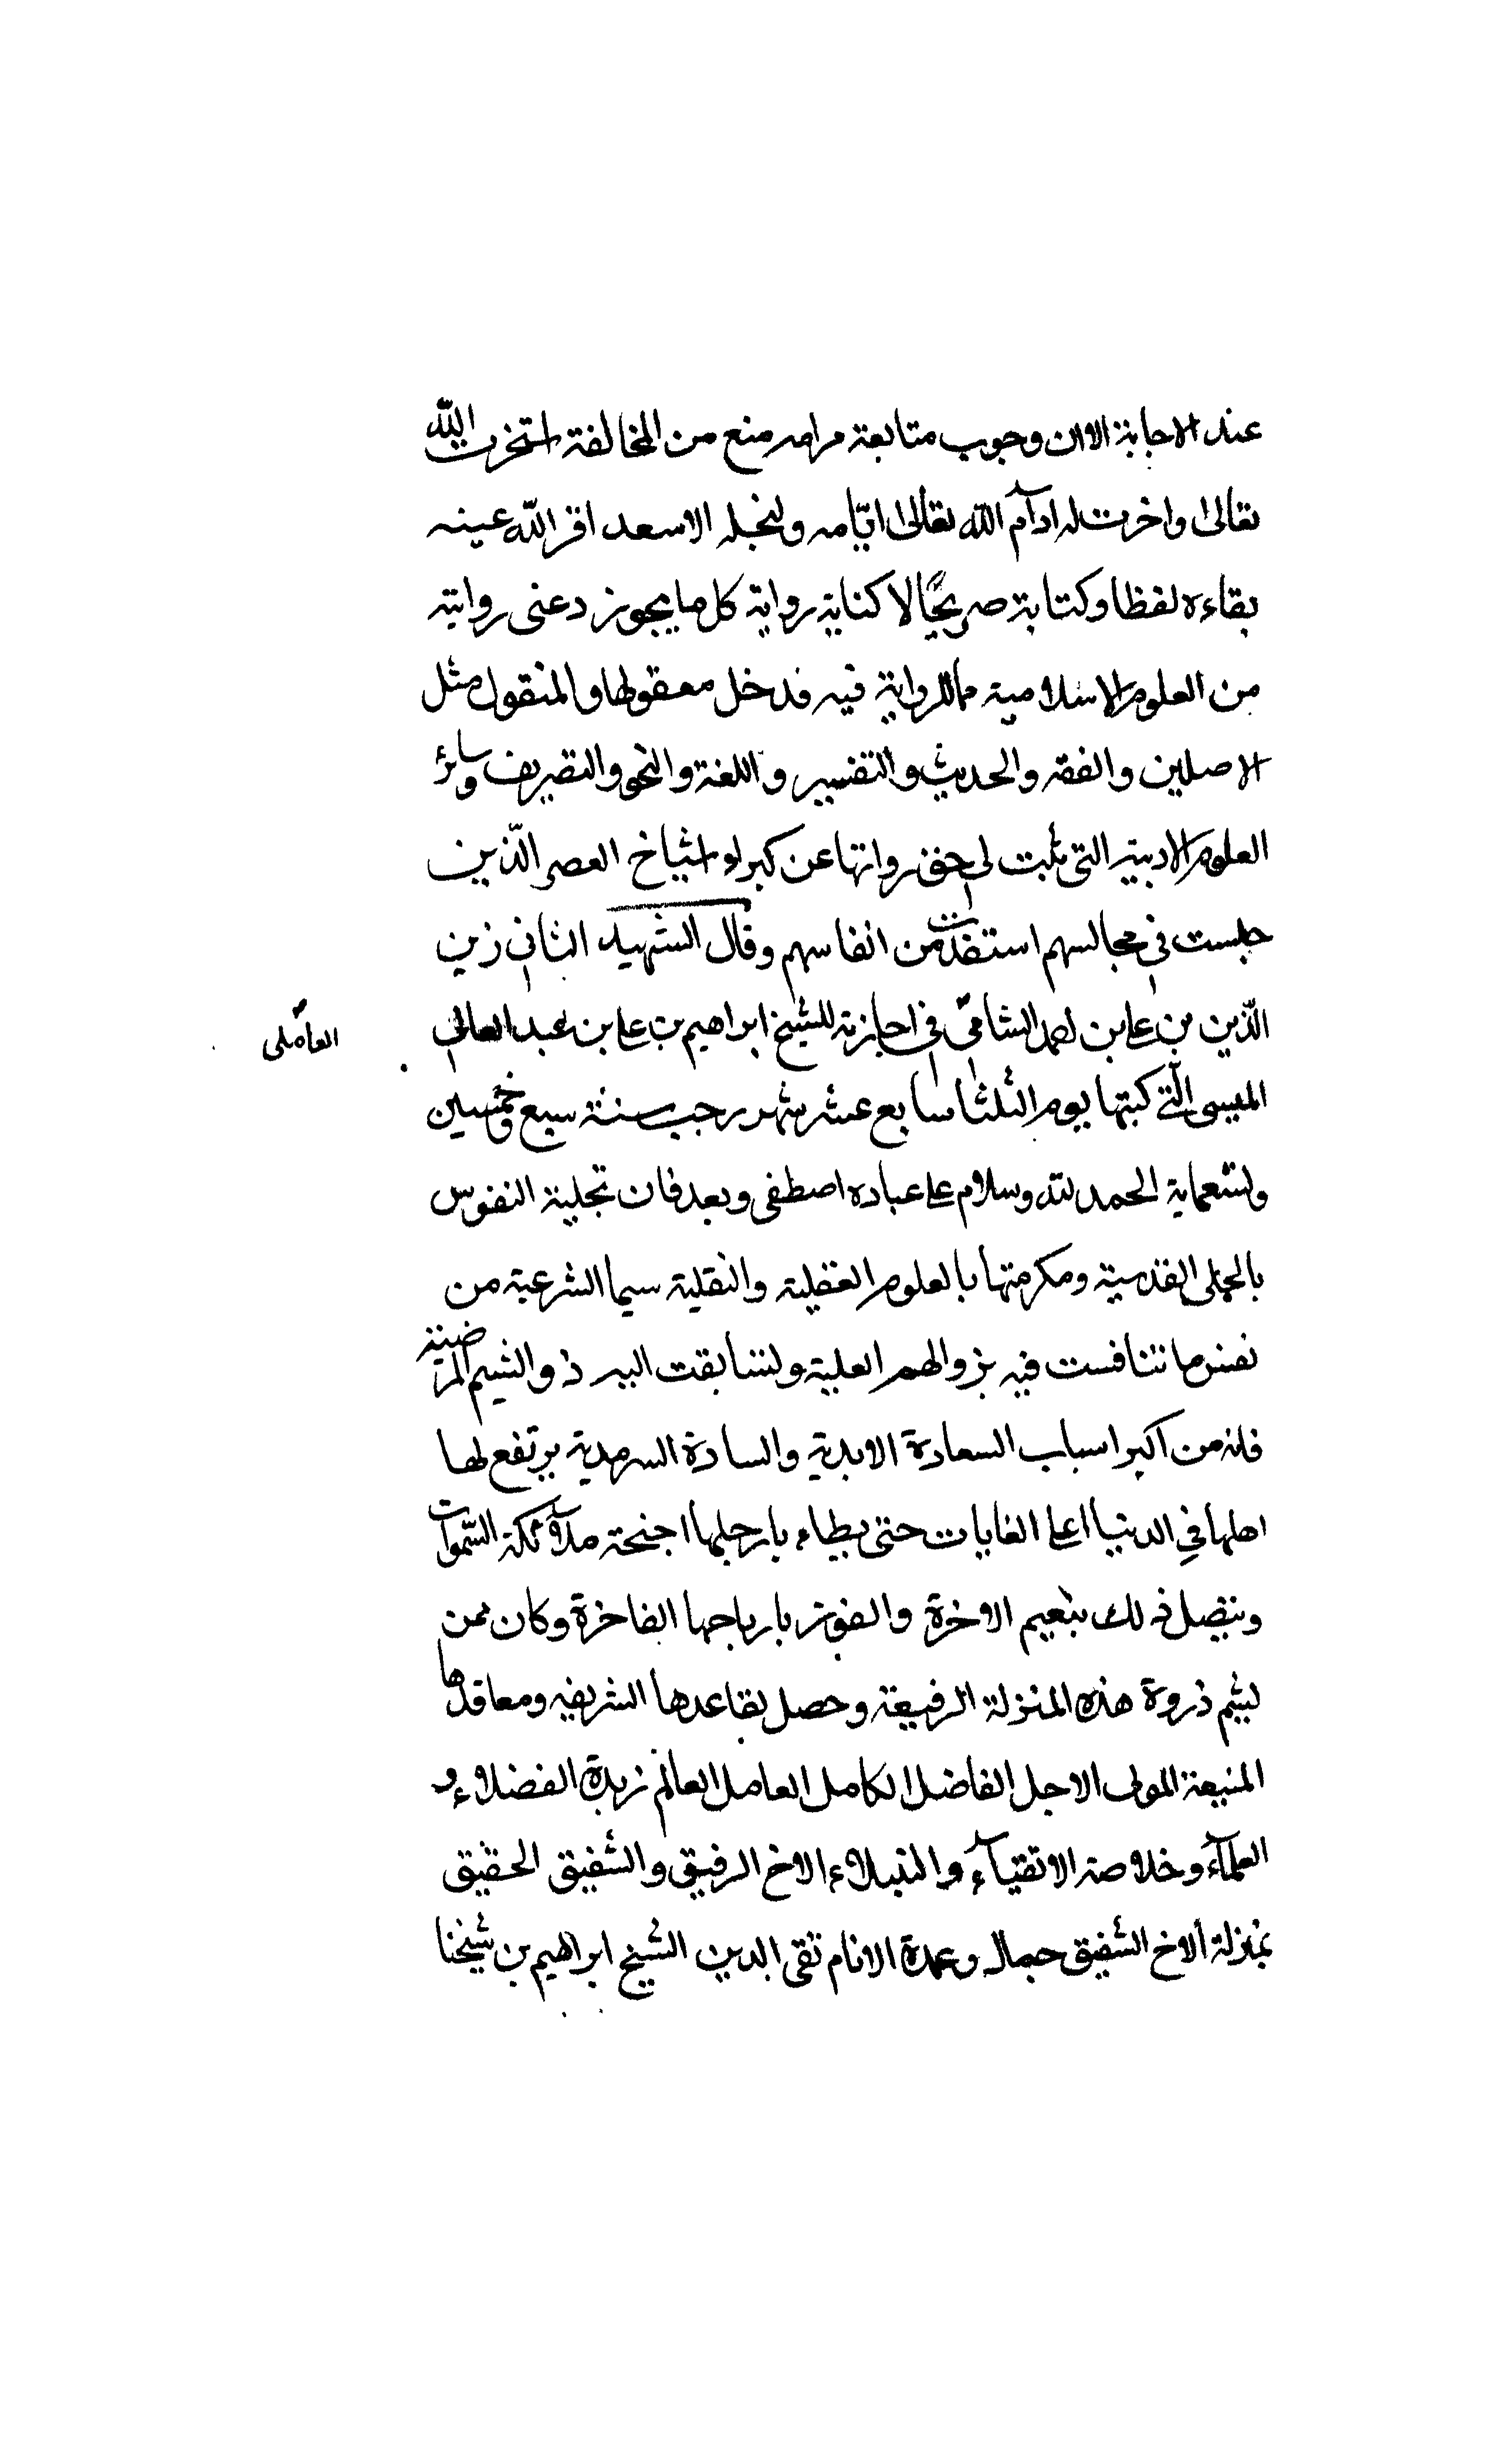 عند الاجابة الا ان وجوب متابعة مرامه منع من المخالفة استخرت الله
تعالى واخرت له ادآم الله تعالى ايّامه ولنجله الاسعد اقر الله عينه
بقاءه لفظا وكتابة صريحًا لا كناية رواية كل ما يجوز عنى روايته
من العلوم الاسلامية مما للرواية فيه فدخل معقولها والمنقول مثل
الاصلين والفقه والحديث والتفسير واللغة والنحو والتصريف وسائر
العلوم الادبية التى ثبت لى حق روايتها عن كبراء اشياخ العصر الّذين
جلست فى مجالسهم استفدت من انفاسهم وقال الشهيد الثانى زين
الدّين بن على بن احمد الشامىّ فى اجازته للشيخ ابراهيم بن على بن عبد العالى
العاملى
الميسى الّتى كتبها يوم الثلثا سابع عشر شهر رجب سنة سبع وخمسين
وتسعماية الحمد لله وسلام على عباده اصطفى وبعد فان تجلية النفوس
بالحلى القدسية ومكرمتها بالعلوم العقلية والنقلية سيما الشرعية من
نفس ما تنافست فيه ذو الهمم العلية ولتسابقت اليه ذو الشيم المرضية
فانه من اكبر اسباب السعادة الابدية والسادة السرمدية يرتفع لها
اهلها فى الدنيا اعلى الغايات حتى يطاء بارجلها اجنحة ملآئكة السّموات
ويتصل ذلك بنعيم الاخرة والفوز بارباحها الفاخرة وكان ممن
ذروة هذه المنزلة الرفيعة وحصل بقاعدها الشريفه ومعاقدها
المنيعة المولى الاجل الفاضل الكامل العامل العالم زبدة الفضلاء و
العلمآء وخلاصة الاتقيآء والنبلاء الاخ الرفيق والشفيق الحقيق
بمنزلة الاخ الشفيق جمال وعمدة الانام تقى الدين الشيخ ابراهيم بن شيخنا